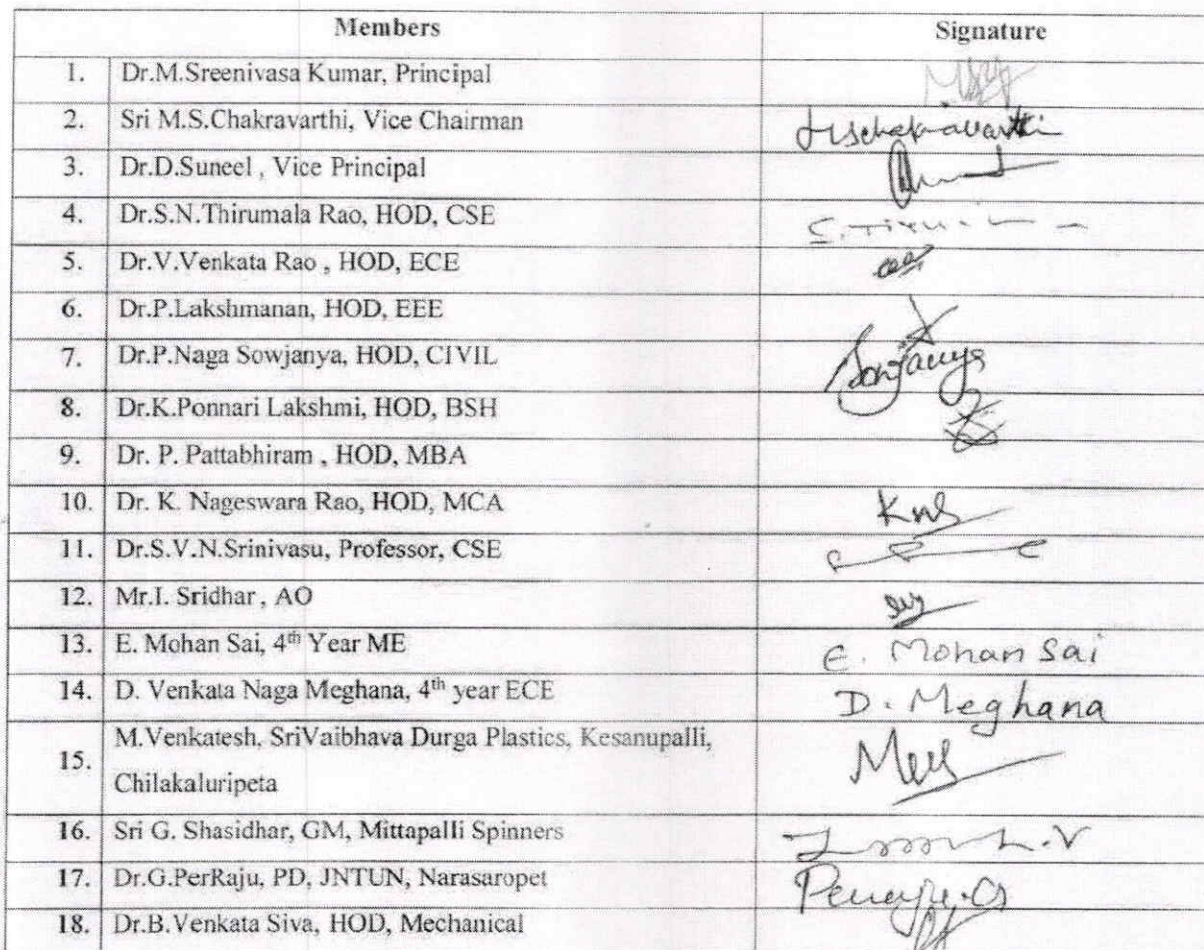 Members Signature
1. Dr.M.Sreenivasa Kumar, Principal
2. Sri M.S.Chakravarthi, Vice Chairman
3. Dr.D.Suneel , Vice Principal
4. Dr.S.N.Thirumala Rao, HOD, CSE
5. Dr.V.Venkata Rao , HOD, ECE
6. Dr.P.Lakshmanan, HOD, EEE
7. Dr.P.Naga Sowjanya, HOD, CIVIL Sowjanya
8. Dr.K.Ponnari Lakshmi, HOD, BSH
9. Dr. P. Pattabhiram , HOD, MBA
10. Dr. K. Nageswara Rao, HOD, MCA
11. Dr.S.V.N.Srinivasu, Professor, CSE
12. Mr.I. Sridhar , AO
13. E. Mohan Sai, 4th Year ME E. Mohan Sai
14. D. Venkata Naga Meghana, 4th year ECE D. Meghana
15. M.Venkatesh, SriVaibhava Durga Plastics, Kesanupalli,
Chilakaluripeta
16. Sri G. Shasidhar, GM, Mittapalli Spinners
17. Dr.G.PerRaju, PD, JNTUN, Narasaropet
18. Dr.B.Venkata Siva, HOD, Mechanical